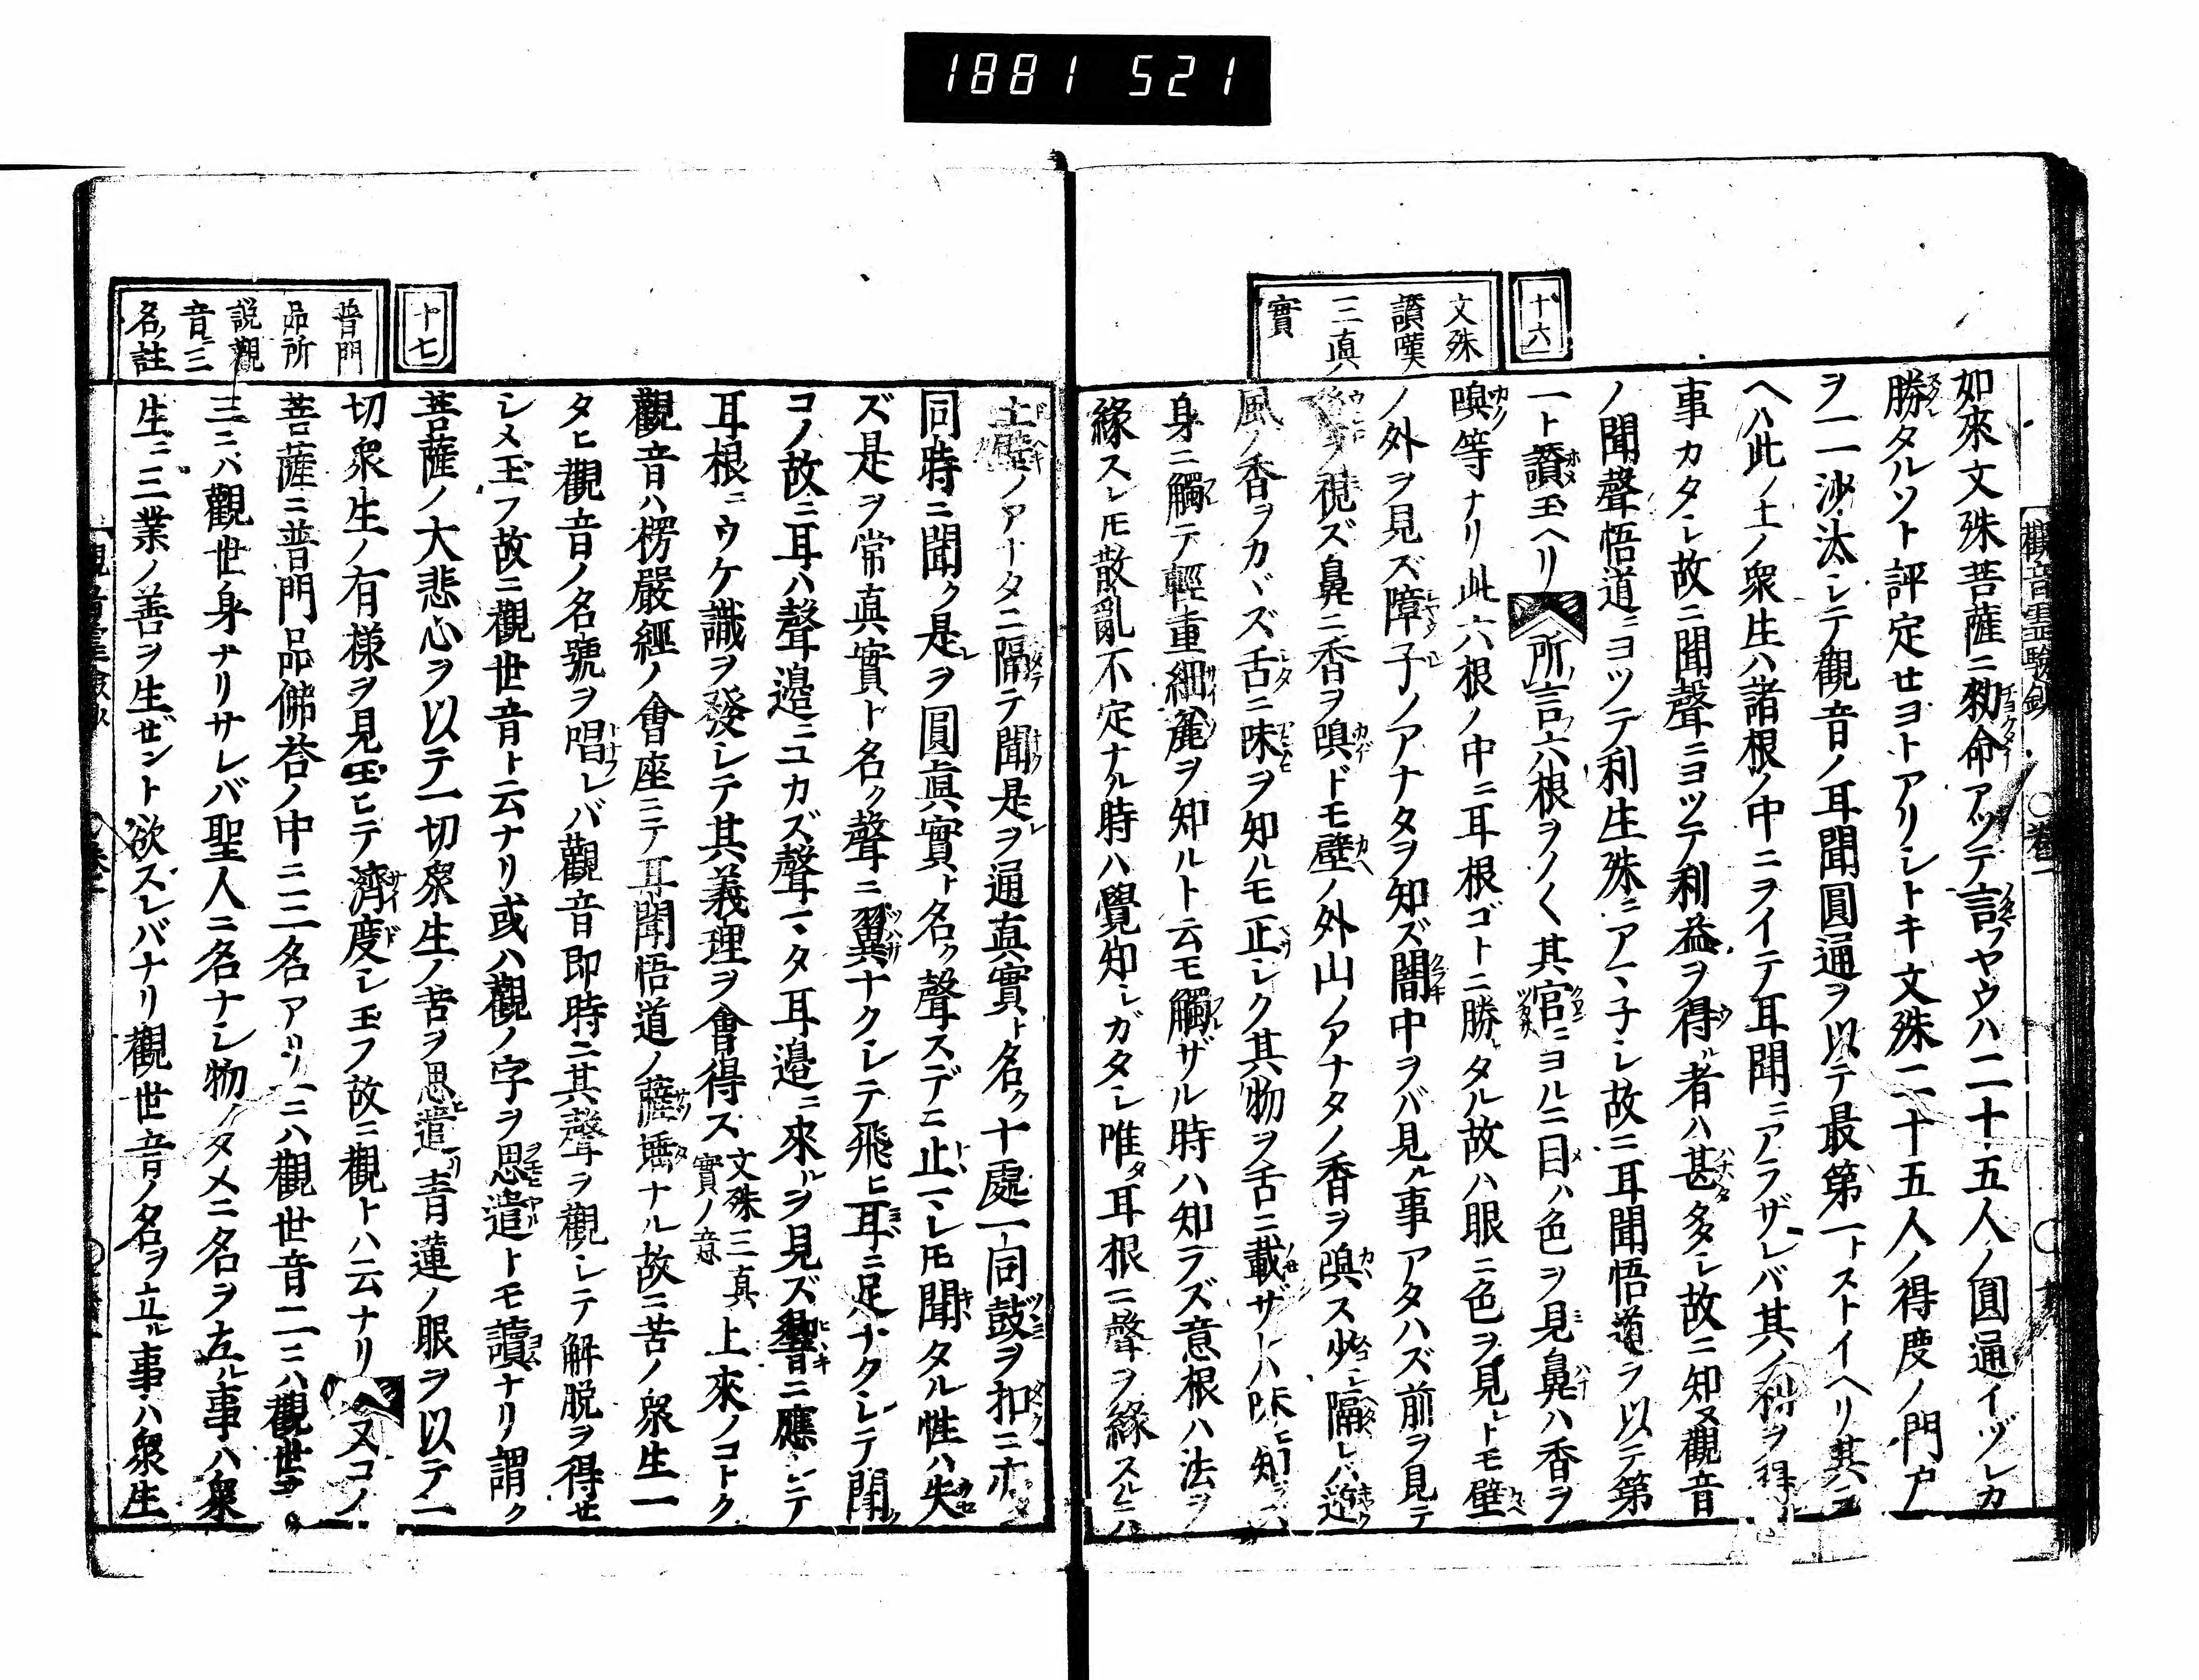 1881 521
觀音靈驗鈔
十六
文殊
讚嘆
三真
實
如來文殊菩薩ニ勅命アッテ言フヤウハ二十五人ノ圓通イヅレカ
勝タルソト評定セヨトアリシトキ文殊二十五人ノ得度ノ門戸
ヲ一一沙汰シテ觀音ノ耳聞圓通ヲ以テ最第一トストイヘリ其
ヘハ此ノ土ノ衆生ハ諸根ノ中ニヲイテ耳聞ニアラザレバ其ノ
事カタシ故ニ聞聲ニヨツテ利益ヲ得ル者ハ甚多シ故ニ知ヌ觀音
ノ聞聲悟道ニヨツテ利生殊ニアマ子シ故ニ耳聞悟道ヲ以テ第
一ト讚玉ヘリ所言六根ヲノ〱其官ニヨルニ目ハ色ヲ見鼻ハ香ヲ
嗅等ナリ此六根ノ中ニ耳根ゴトニ勝タル故ハ眼ニ色ヲ見トモ壁
ノ外ヲ見ズ障子ノアナタヲ知ズ闇中ヲバ見ル事アタハズ前ヲ見テ
ヲ視ズ鼻ニ香ヲ嗅ドモ壁ノ外山ノアナタノ香ヲ嗅ス少シ隔レバ
風ノ香ヲカヾズ舌ニ味ヲ知ルモ正シク其物ヲ舌ニ載ザレハ味ヒ知
身ニ觸テ輕重細麁ヲ知ルト云モ觸ザル時ハ知ラズ意根ハ法ヲ
緣スレモ散亂不定ナル時ハ覺知シガタシ唯耳根ニ聲ヲ緣スルニハ
十七
普門
品所
説觀
音三
名註
ノアナタニ隔テ聞是ヲ通真實ト名ク十處一同鼓ヲ扣ニ
同時ニ聞ク是ヲ圓眞實ト名ク聲スデニ止マレモ聞タル性ハ失
ズ是ヲ常真實ト名ク聲ニ翼ナクシテ飛ヒ耳ニ足ナクシテ聞
コノ故ニ耳ハ聲邉ニユカズ聲マタ耳邉ニ來ルヲ見ズ響ニ應シテ
耳根ニウケ識ヲ發シテ其義理ヲ會得ス文殊三真實ノ意上來ノコトク
觀音ハ楞嚴經ノ會座ニテ耳聞悟道ノ薩埵ナル故ニ苦ノ衆生一
タヒ觀音ノ名號ヲ唱レバ觀音即時ニ其聲ヲ觀シテ解脱ヲ得セ
シメ玉フ故ニ觀世音ト云ナリ或ハ觀ノ字ヲ思遣トモ讀ナリ謂ク
菩薩ノ大悲心ヲ以テ一切衆生ノ苦ヲ思遣リ青蓮ノ眼ヲ以テ一
切衆生ノ有樣ヲ見玉ヒテ濟度シ玉フ故ニ觀トハ云ナリ又コノ
菩薩ニ普門品佛荅ノ中ニ三名アリ一ニハ觀世音二ニハ觀世音
三ニハ觀世身ナリサレバ聖人ニ名ナシ物ノタメニ名ヲ立ル事ハ衆
生ニ三業ノ善ヲ生ゼント欲スレバナリ觀世音ノ名ヲ立ル事ハ衆生